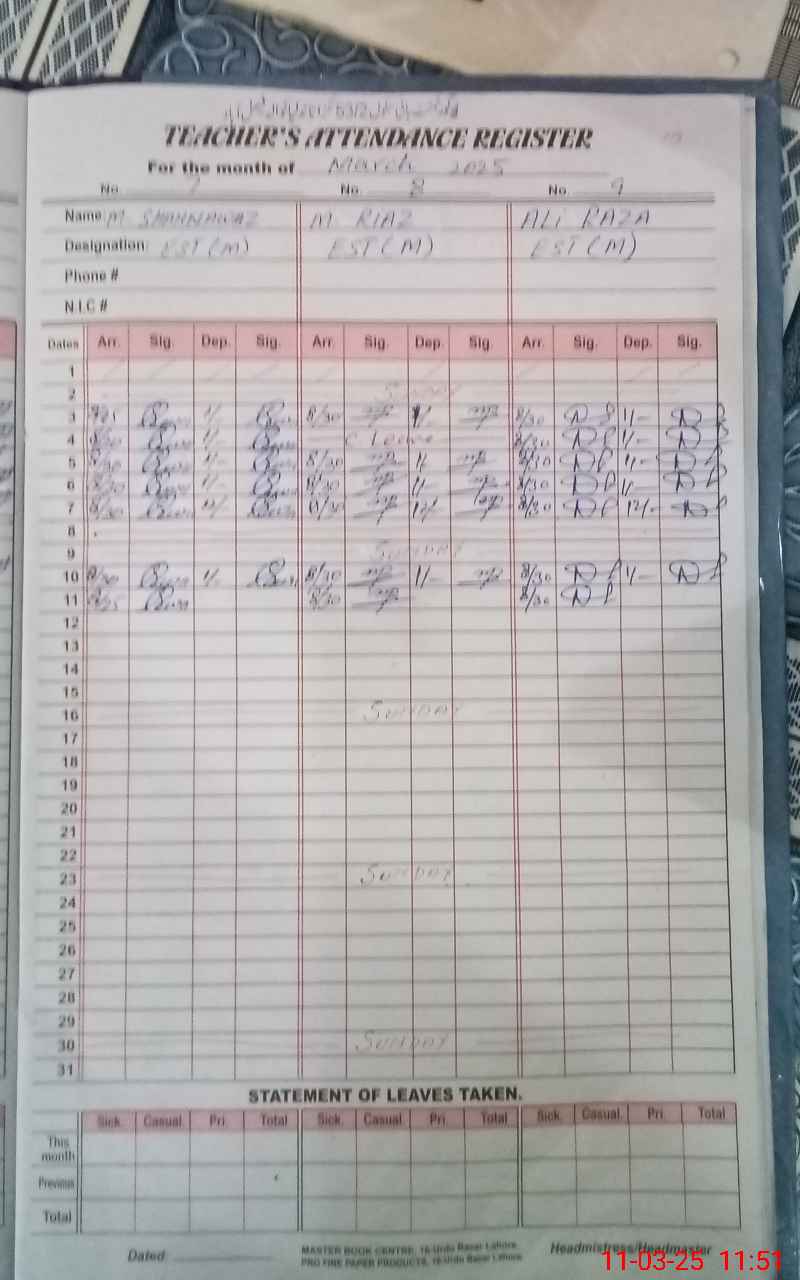 TEACHER'S ATTENDANCE REGISTER
For the month of March 2025
No. 7 No. 8 No. 9
Name: M. SHAHNAWAZ M. RIAZ ALI RAZA
Designation: EST (M) EST (M) EST (M)
Phone #
N.I.C #
Dates Arr. Sig. Dep. Sig. Arr. Sig. Dep. Sig. Arr. Sig. Dep. Sig.
1
2 Sunday
3 8/30 1/- 8/30 1/-
4 8/30 1/- C Leave 8/30 1/-
5 8/30 1/- 8/30 1/- 8/30 1/-
6 8/30 1/- 8/30 1/- 8/30 1/-
7 8/30 12/- 8/30 12/- 8/30 12/-
8
9 SUNDAY
10 8/30 1/- 8/30 1/- 8/30 1/-
11 8/25 8/30 8/30
12
13
14
15
16 SUNDAY
17
18
19
20
21
22
23 SUNDAY
24
25
26
27
28
29
30 SUNDAY
31
STATEMENT OF LEAVES TAKEN.
Sick. Casual. Pri. Total Sick. Casual Pri. Total Sick. Casual. Pri. Total
This month
Previous
Total
Dated
MASTER BOOK CENTRE, 16-Urdu Bazar Lahore.
PRO FINE PAPER PRODUCTS, 16-Urdu Bazar Lahore.
Headmistress/Headmaster
11-03-25 11:51